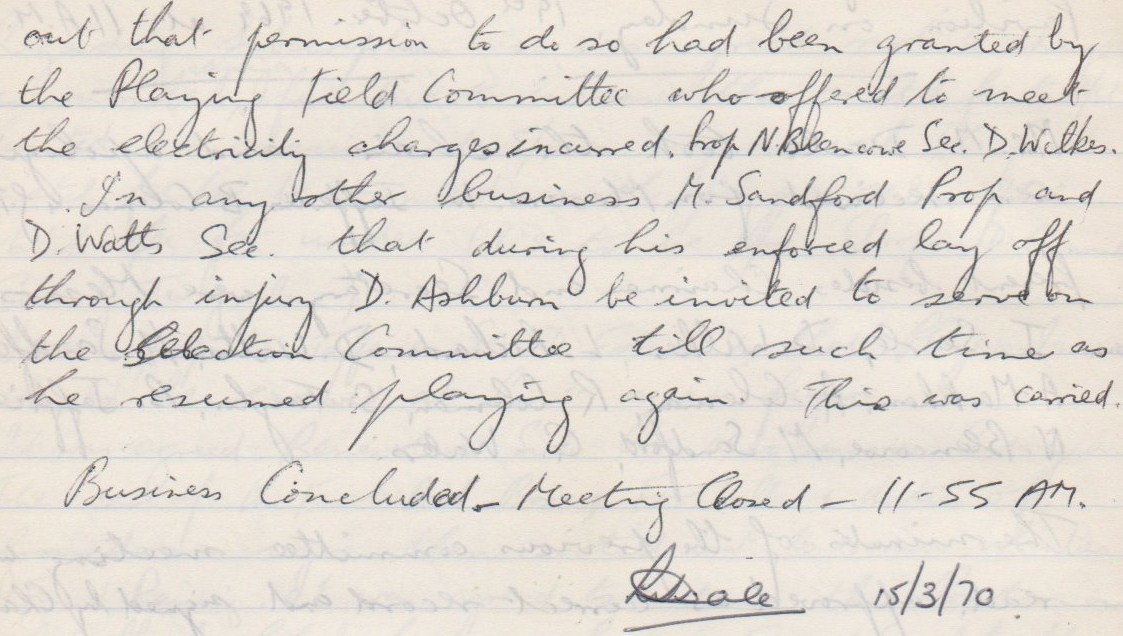 out that permission to do so had been granted by
the Playing Field Committee who offered to meet
the electricity charges incurred. Prop N. Blencowe Sec. D. Wilkes.
In any other business M. Sandford Prop and
D. Watts Sec. that during his enforced lay off
through injury D. Ashburn be invited to serve on
the Selection Committee till such time as
he resumed playing again. This was carried.
Business Concluded - Meeting Closed - 11-55 AM.
15/3/70